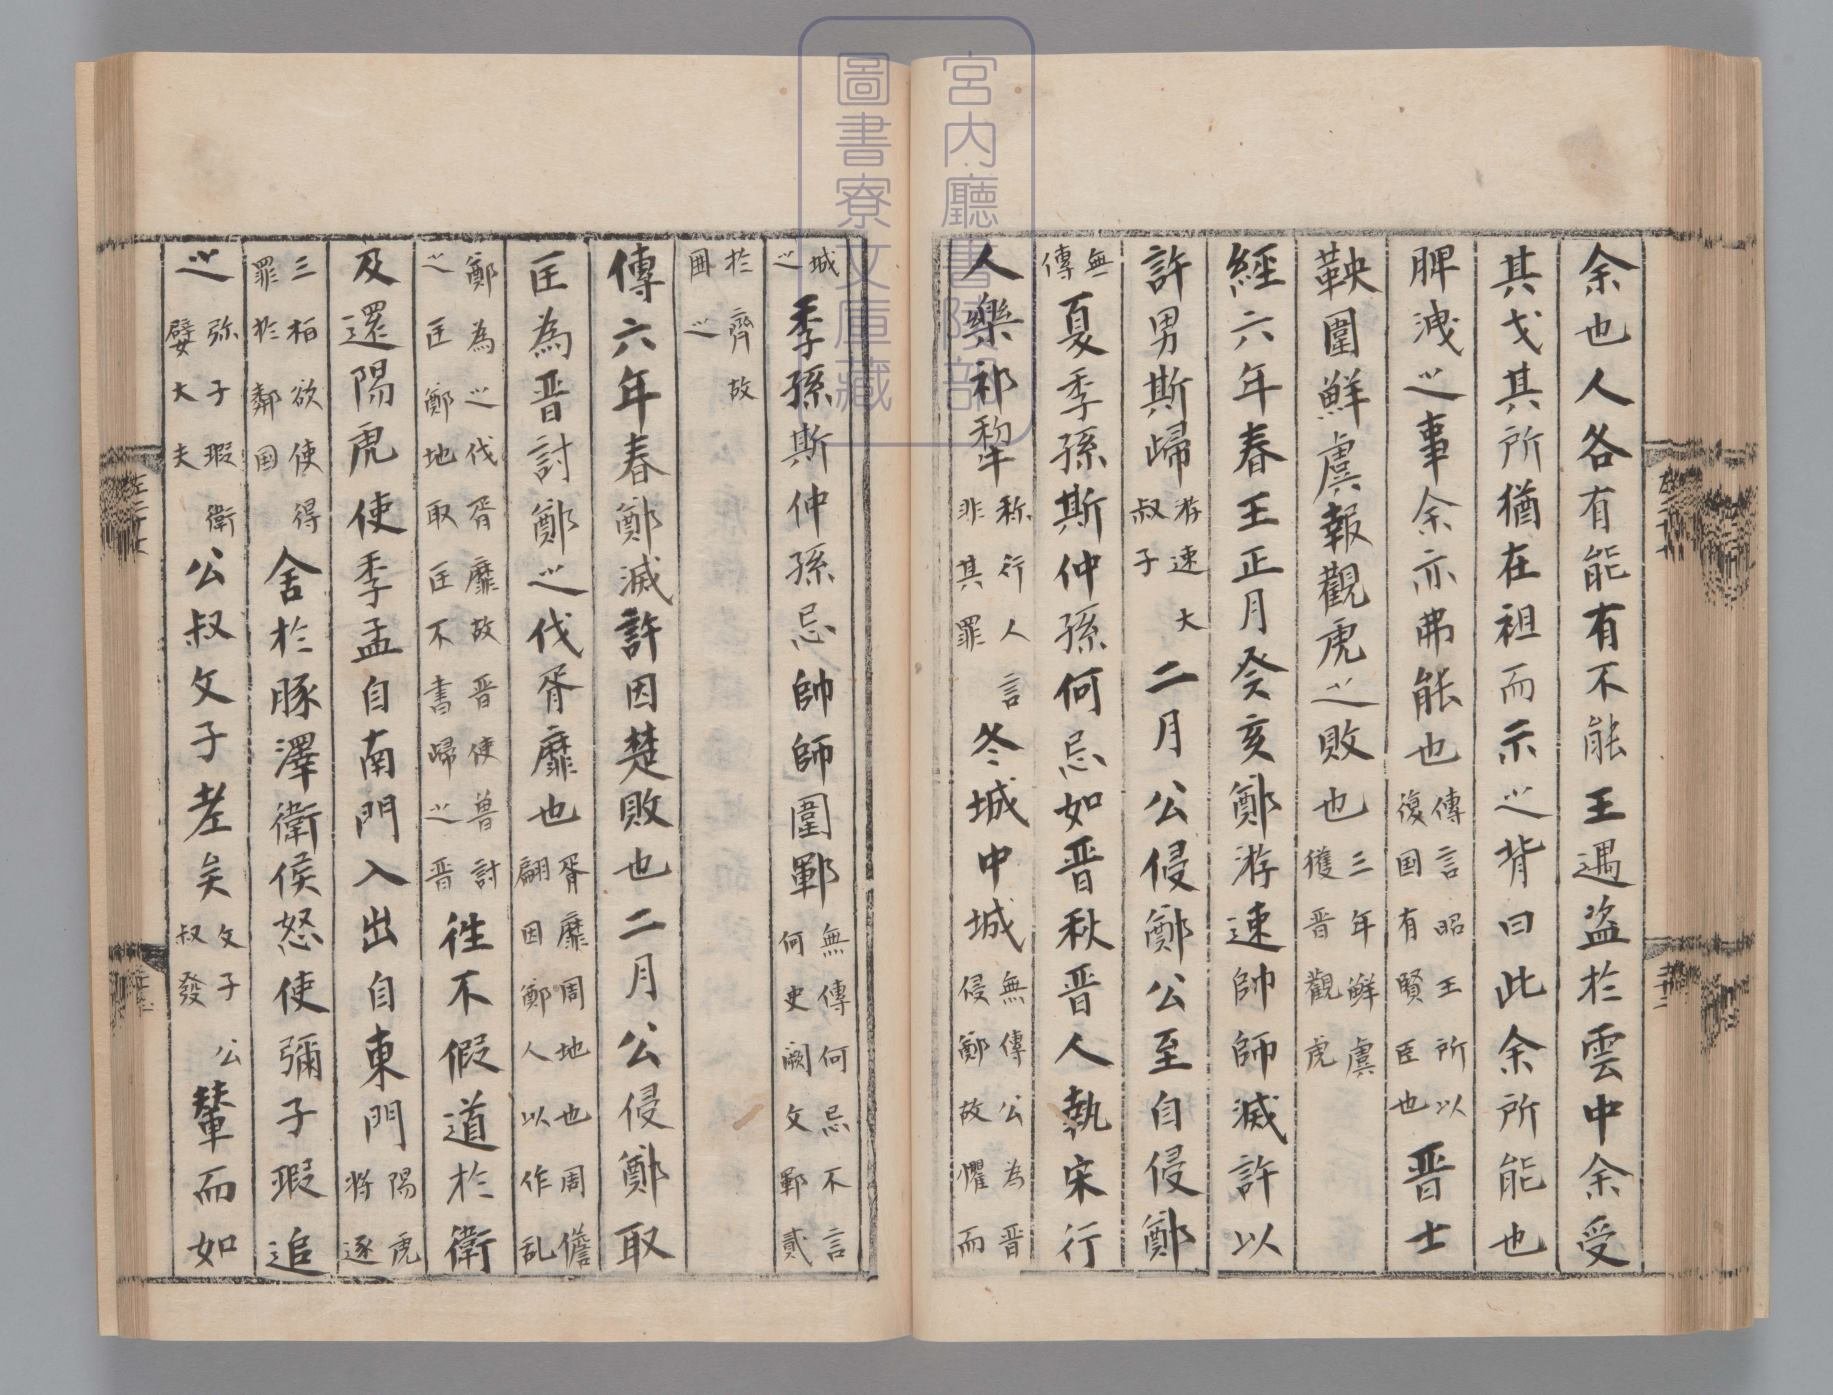 余也人各有能有不能王遇盗於雲中余受
其戈其所猶在祖而示之背曰此余所能也
脾洩之事余亦弗能也傳言昭王所以復国有賢臣也晋士
鞅圍鮮虞報觀虎之敗也三年鮮虞獲晋觀虎
經六年春王正月癸亥鄭游速帥師滅許以
許男斯歸游速大叔子二月公侵鄭公至自侵鄭
無傳夏季孫斯仲孫何忌如晋秋晋人執宋行
人樂祁犂称行人言非其罪冬城中城無傳公為晋侵鄭故懼而
城之季孫斯仲孫忌帥師圍鄆無傳何忌不言何史闕文鄆貳
於齊故囲之
傳六年春鄭滅許因楚敗也二月公侵鄭取
匡為晋討鄭之伐胥靡也胥靡周地也周儋翩因鄭人以作乱
鄭為之伐胥靡故晋使魯討之匡鄭地取匡不書歸之晋徃不假道於衛
及還陽虎使季孟自南門入出自東門陽虎将逐
三柏欲使得罪於鄰国舍於豚澤衛侯怒使彌子瑕追
之弥子瑕衛嬖大夫公叔文子老矣文子公叔發輦而如
宮内廳書陵部
圖書寮文庫藏